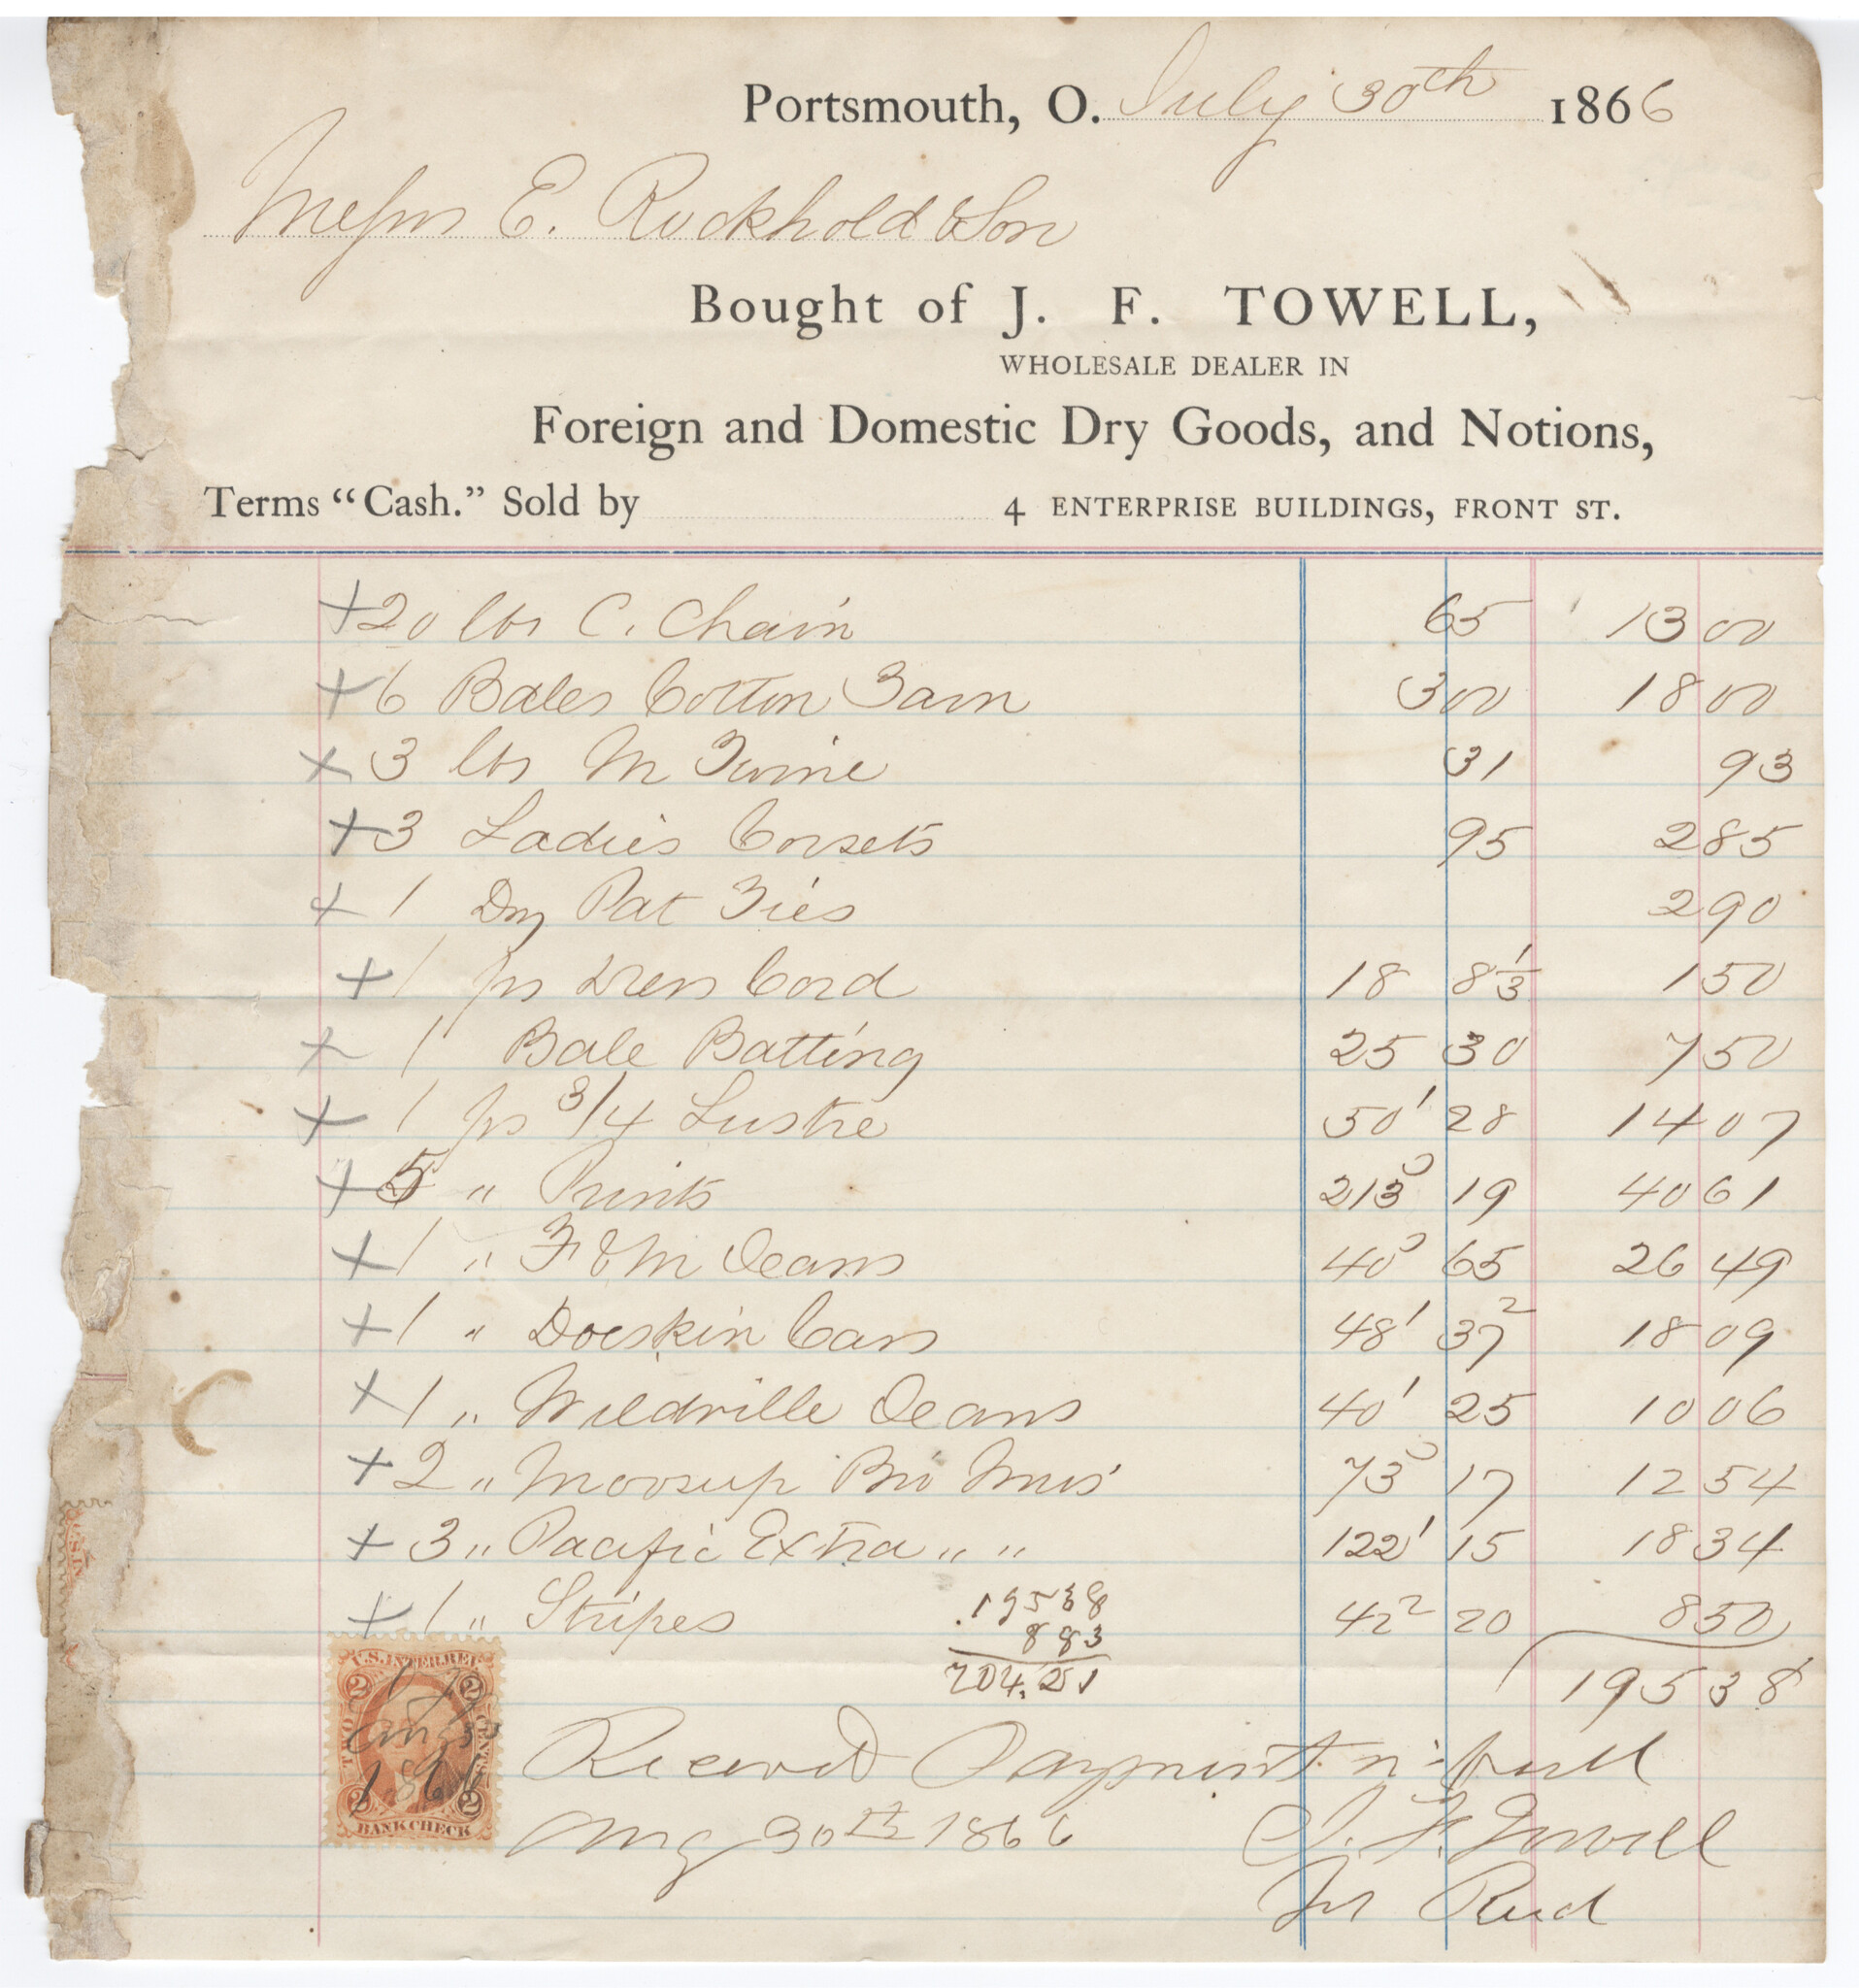 Portsmouth, O. July 30th 1866
Messrs E. Rockhold & Son
Bought of J. F. TOWELL,
WHOLESALE DEALER IN
Foreign and Domestic Dry Goods, and Notions,
Terms "Cash." Sold by 4 ENTERPRISE BUILDINGS, FRONT ST.
+ 20 lbs C. Chain 65 13 00
+ 6 Bales Cotton Yarn 3 00 18 00
+ 3 lbs M Twine 31 93
+ 3 Ladies Corsets 95 2 85
+ 1 Dz Pat Ties 2 90
+ 1 ps Dress Cord 18 8 1/3 1 50
+ 1 Bale Batting 25 30 7 50
+ 1 ps 3/4 Lustre 50 1 28 14 07
+ 5 " Prints 213 3 19 40 61
+ 1 " F & M Jeans 40 3 65 26 49
+ 1 " Doeskin Cass 48 1 37 2 18 09
+ 1 " Wildville Jeans 40 1 25 10 06
+ 2 " Moosup Bro Mus 73 3 17 12 54
+ 3 " Pacific Extra " " 122 1 15 18 34
+ 1 " Stripes 42 2 20 8 50
195 38
8 83
204.21
195 38
U.S. INTER. REV.
2 2
TWO CENTS
Aug 30
1866
2 2
BANK CHECK
Received Payment in full
Aug 30th 1866 J. F. Towell